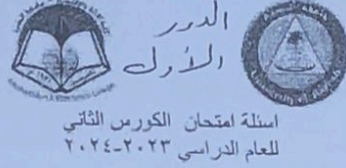 الدور
الأول
اسئلة امتحان الكورس الثاني
للعام الدراسي ٢٠٢٣-٢٠٢٤